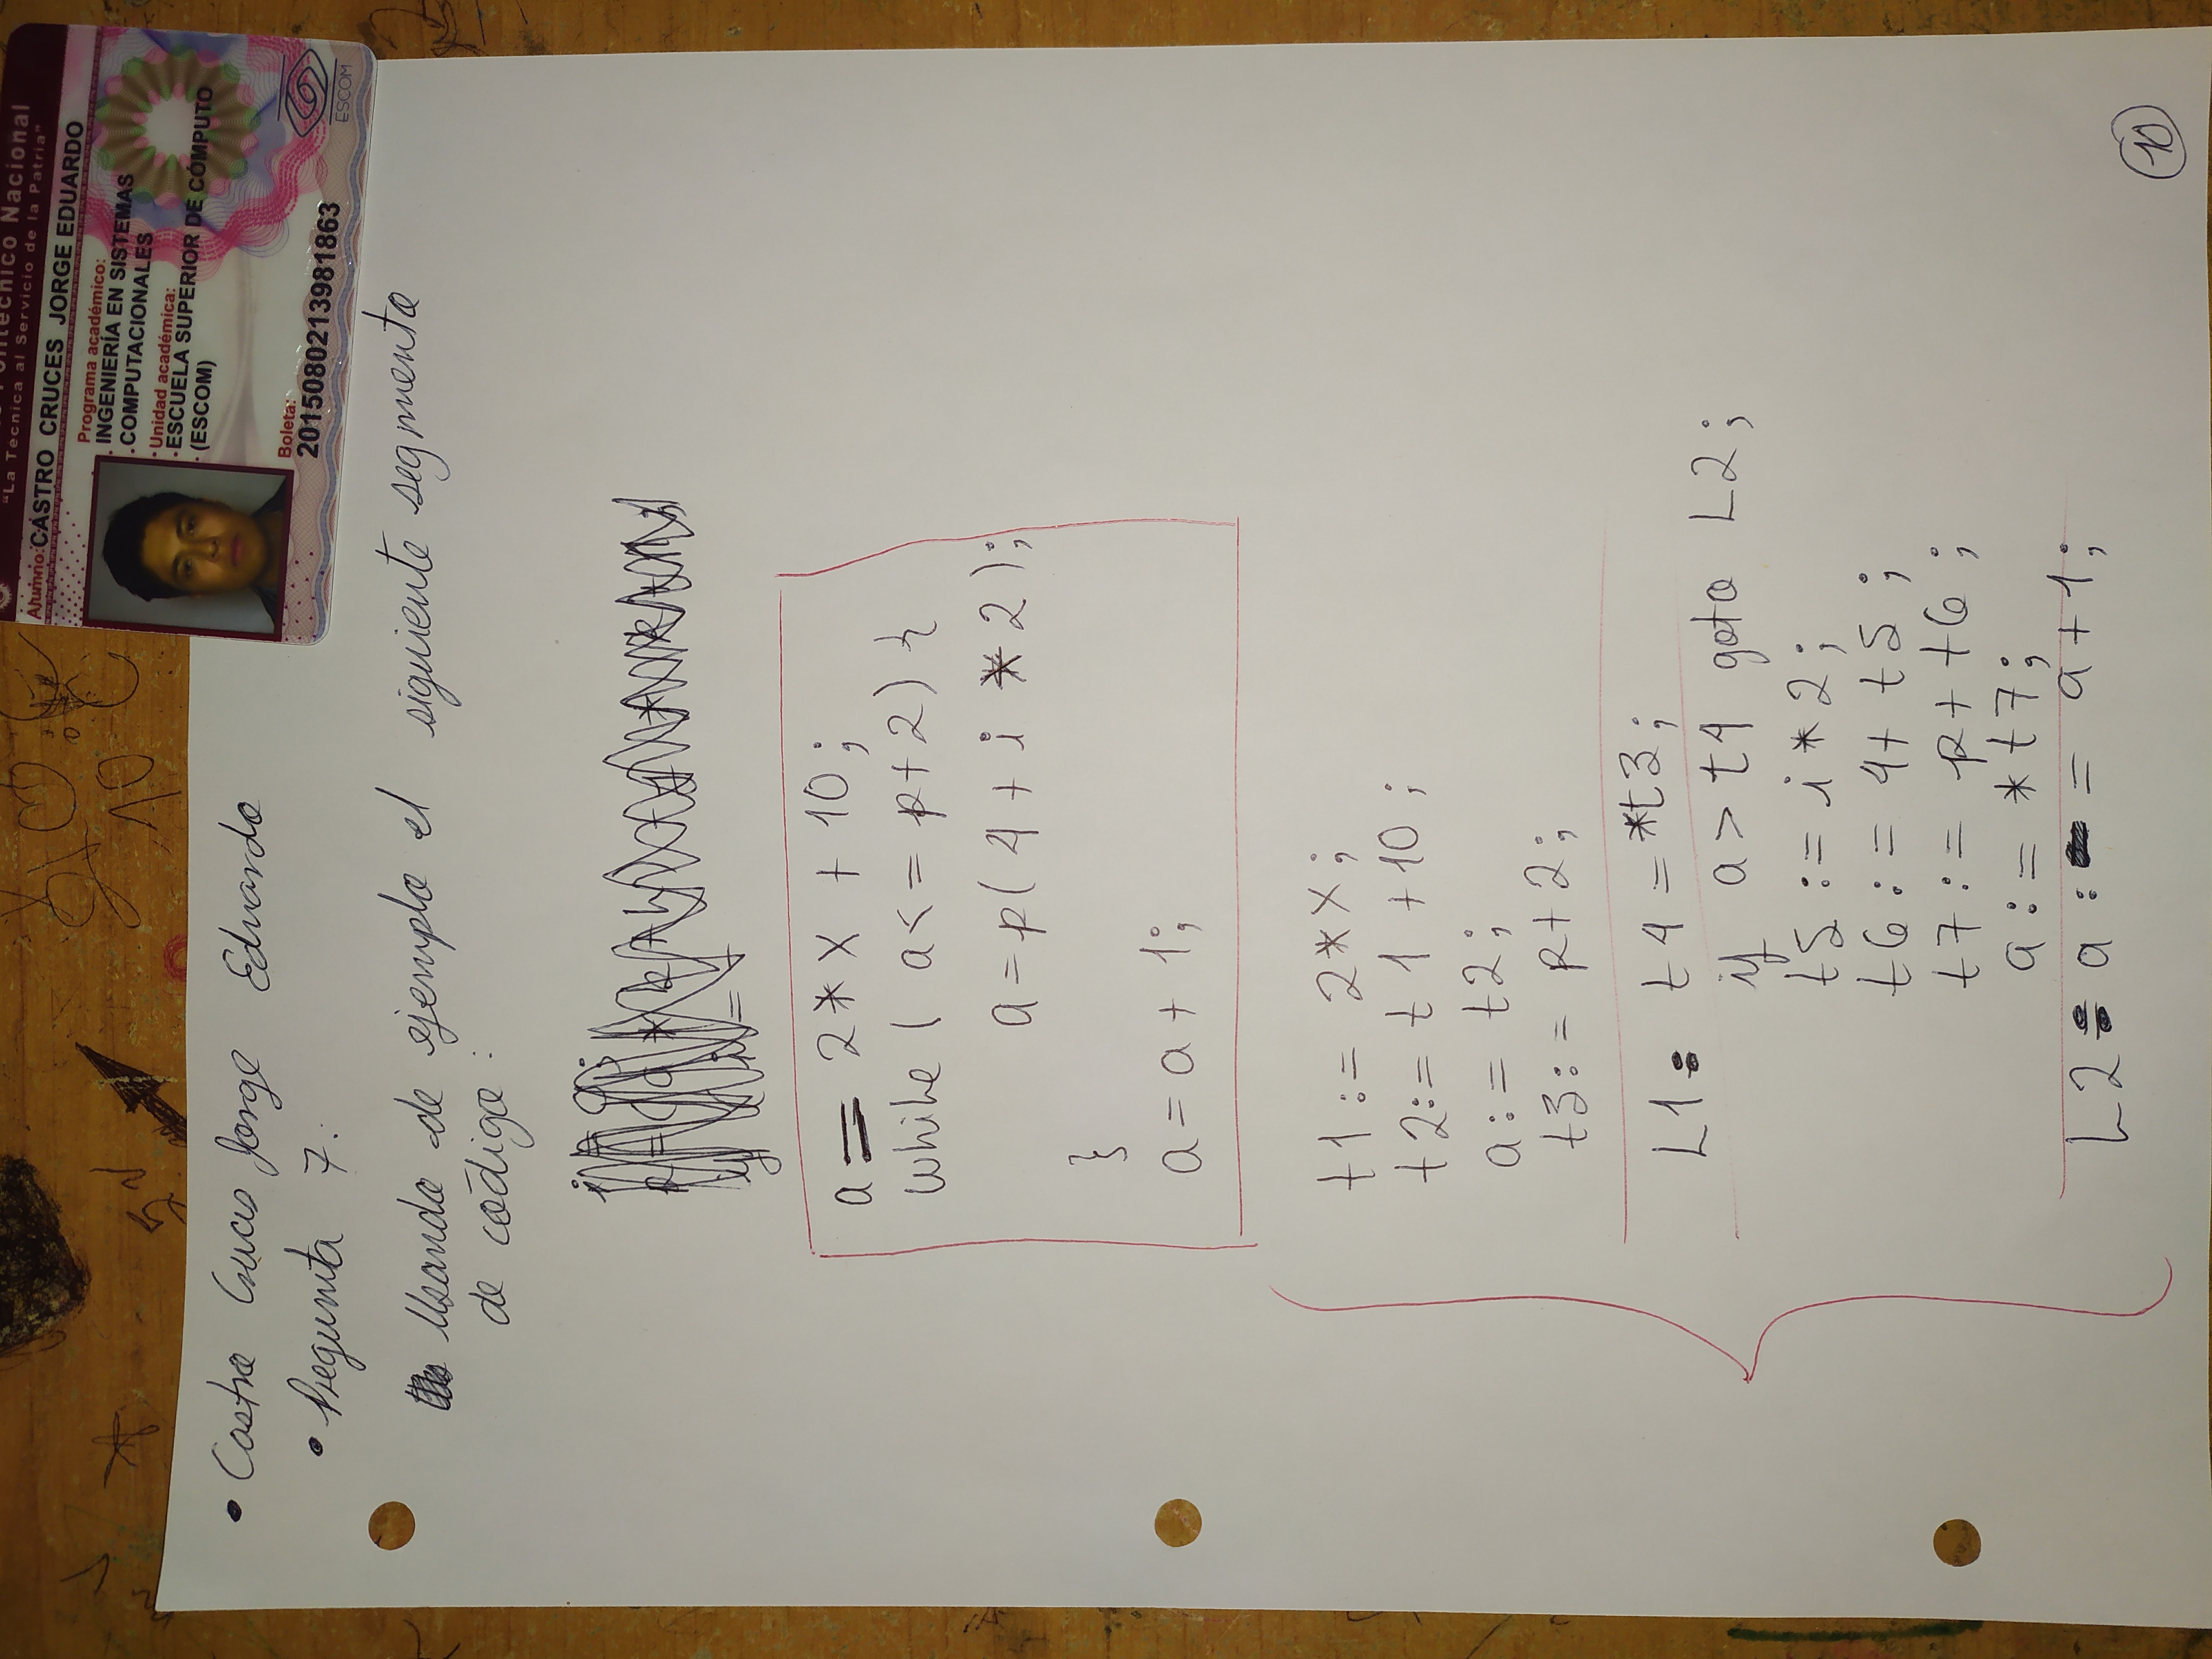 Politécnico Nacional
"La Técnica al Servicio de la Patria"
Alumno: CASTRO CRUCES JORGE EDUARDO
Programa académico:
INGENIERÍA EN SISTEMAS
COMPUTACIONALES
Unidad académica:
ESCUELA SUPERIOR DE CÓMPUTO
(ESCOM)
Boleta:
2015080213981863
ESCOM
10
• Castro Cruces Jorge Eduardo
• Pregunta 7:
Usando de ejemplo el siguiente segmento
de código:
a = 2 * x + 10;
while ( a < = p + 2 ) {
a = p ( 4 + i * 2 );
}
a = a + 1;
t1 := 2 * x;
t2 := t1 + 10;
a := t2;
t3 := p + 2;
L1: t4 = *t3;
if a > t4 goto L2;
t5 := i * 2;
t6 := 4 + t5;
t7 := p + t6;
a := *t7;
L2: a := a + 1;
10